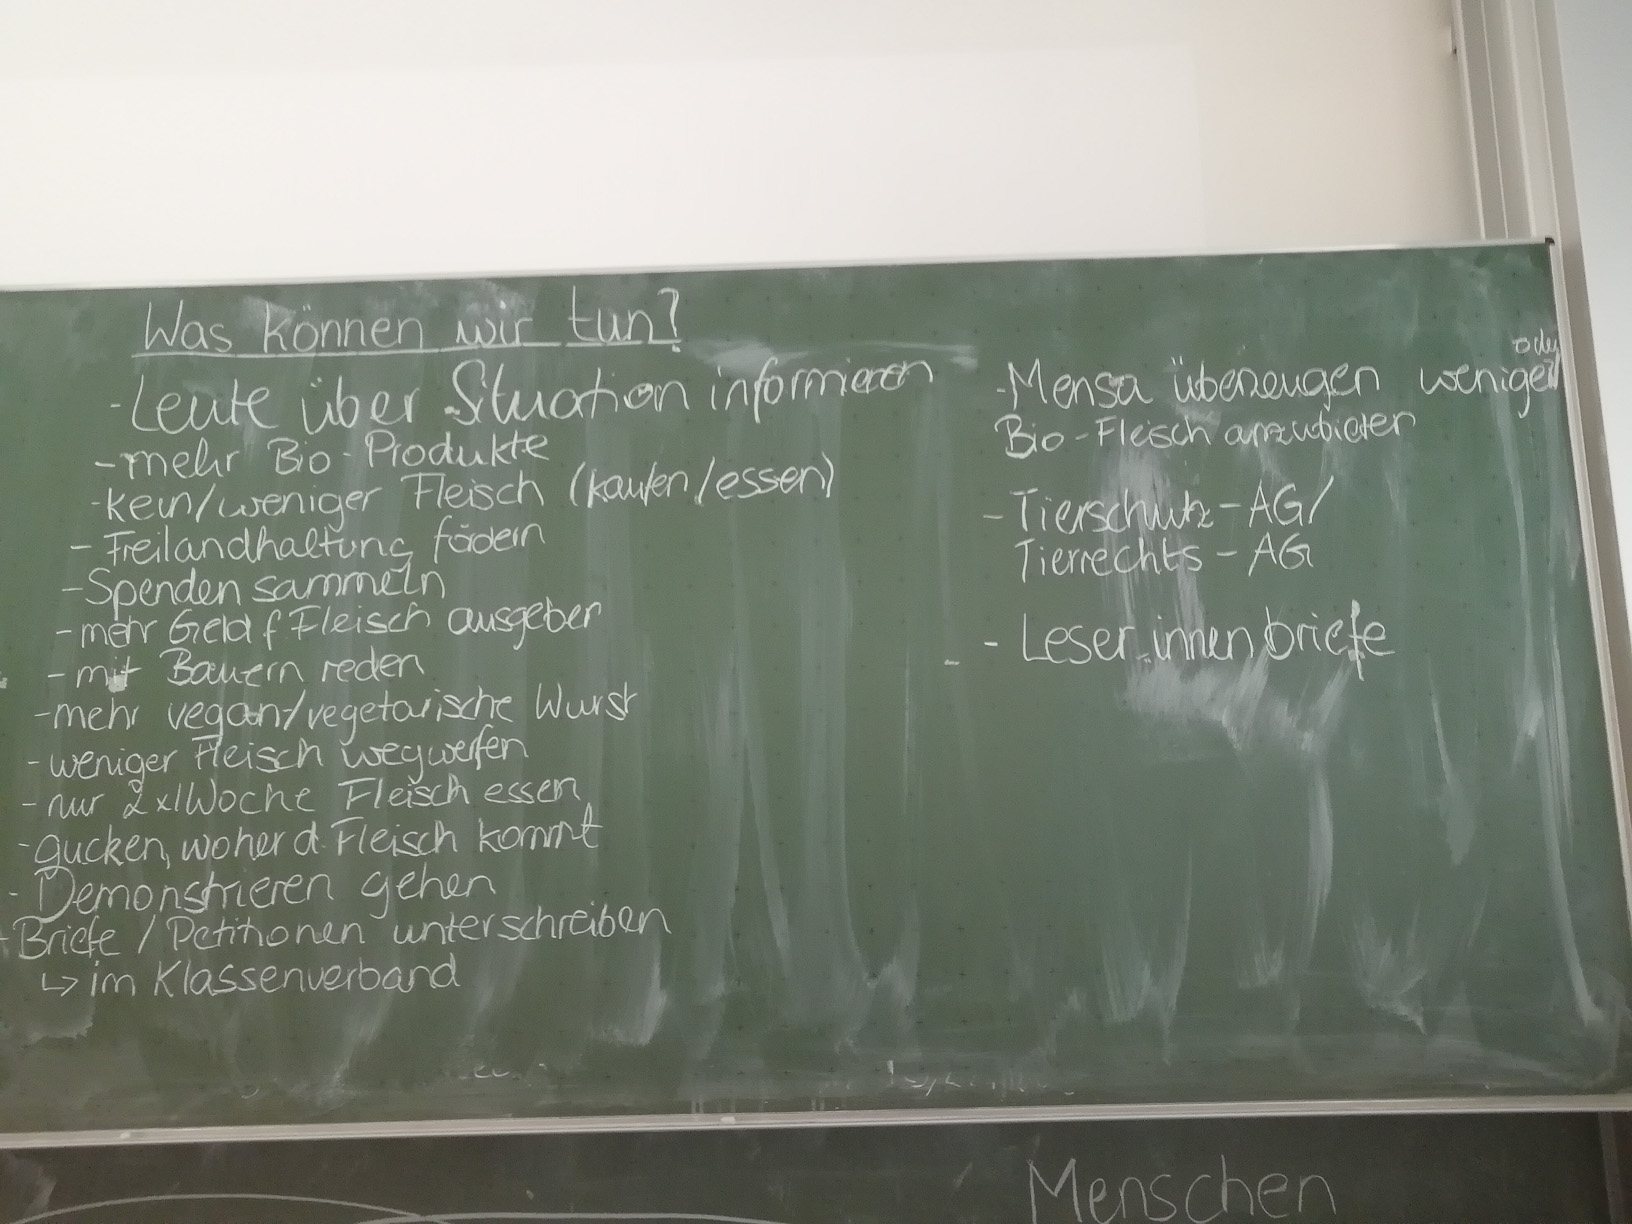 Was können wir tun?
- Leute über Situation informieren
- mehr Bio-Produkte
- kein/weniger Fleisch (kaufen/essen)
- Freilandhaltung fördern
- Spenden sammeln
- mehr Geld f Fleisch ausgeben
- mit Bauern reden
- mehr vegan/vegetarische Wurst
- weniger Fleisch wegwerfen
- nur 2x/Woche Fleisch essen
- gucken, woher d. Fleisch kommt
- Demonstrieren gehen
- Briefe / Petitionen unterschreiben
↳ im Klassenverband
oder
- Mensa überzeugen weniger
Bio-Fleisch anzubieten
- Tierschutz-AG/
Tierrechts-AG
- Leser_innenbriefe
Menschen